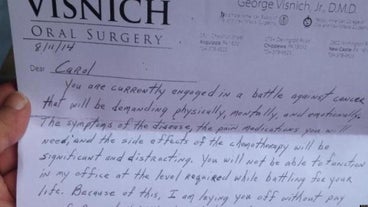 VISNICH
ORAL SURGERY
George Visnich, Jr., D.M.D.
8/11/14
Dear Carol
You are currently engaged in a battle against cancer
that will be demanding physically, mentally, and emotionally.
The symptoms of the disease, the pain medications you will
need, and the side effects of the chemotherapy will be
significant and distracting. You will not be able to function
in my office at the level required while battling for your
life. Because of this, I am laying you off without pay